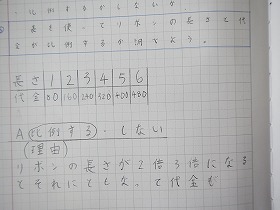 比例するかしないか
表を使ってリボンの長さと代
金が比例するか調べよう。
長さ 1 2 3 4 5 6
代金 80 160 240 320 400 480
A 比例する・しない
理由
リボンの長さが2倍3倍になる
とそれにともなって代金も